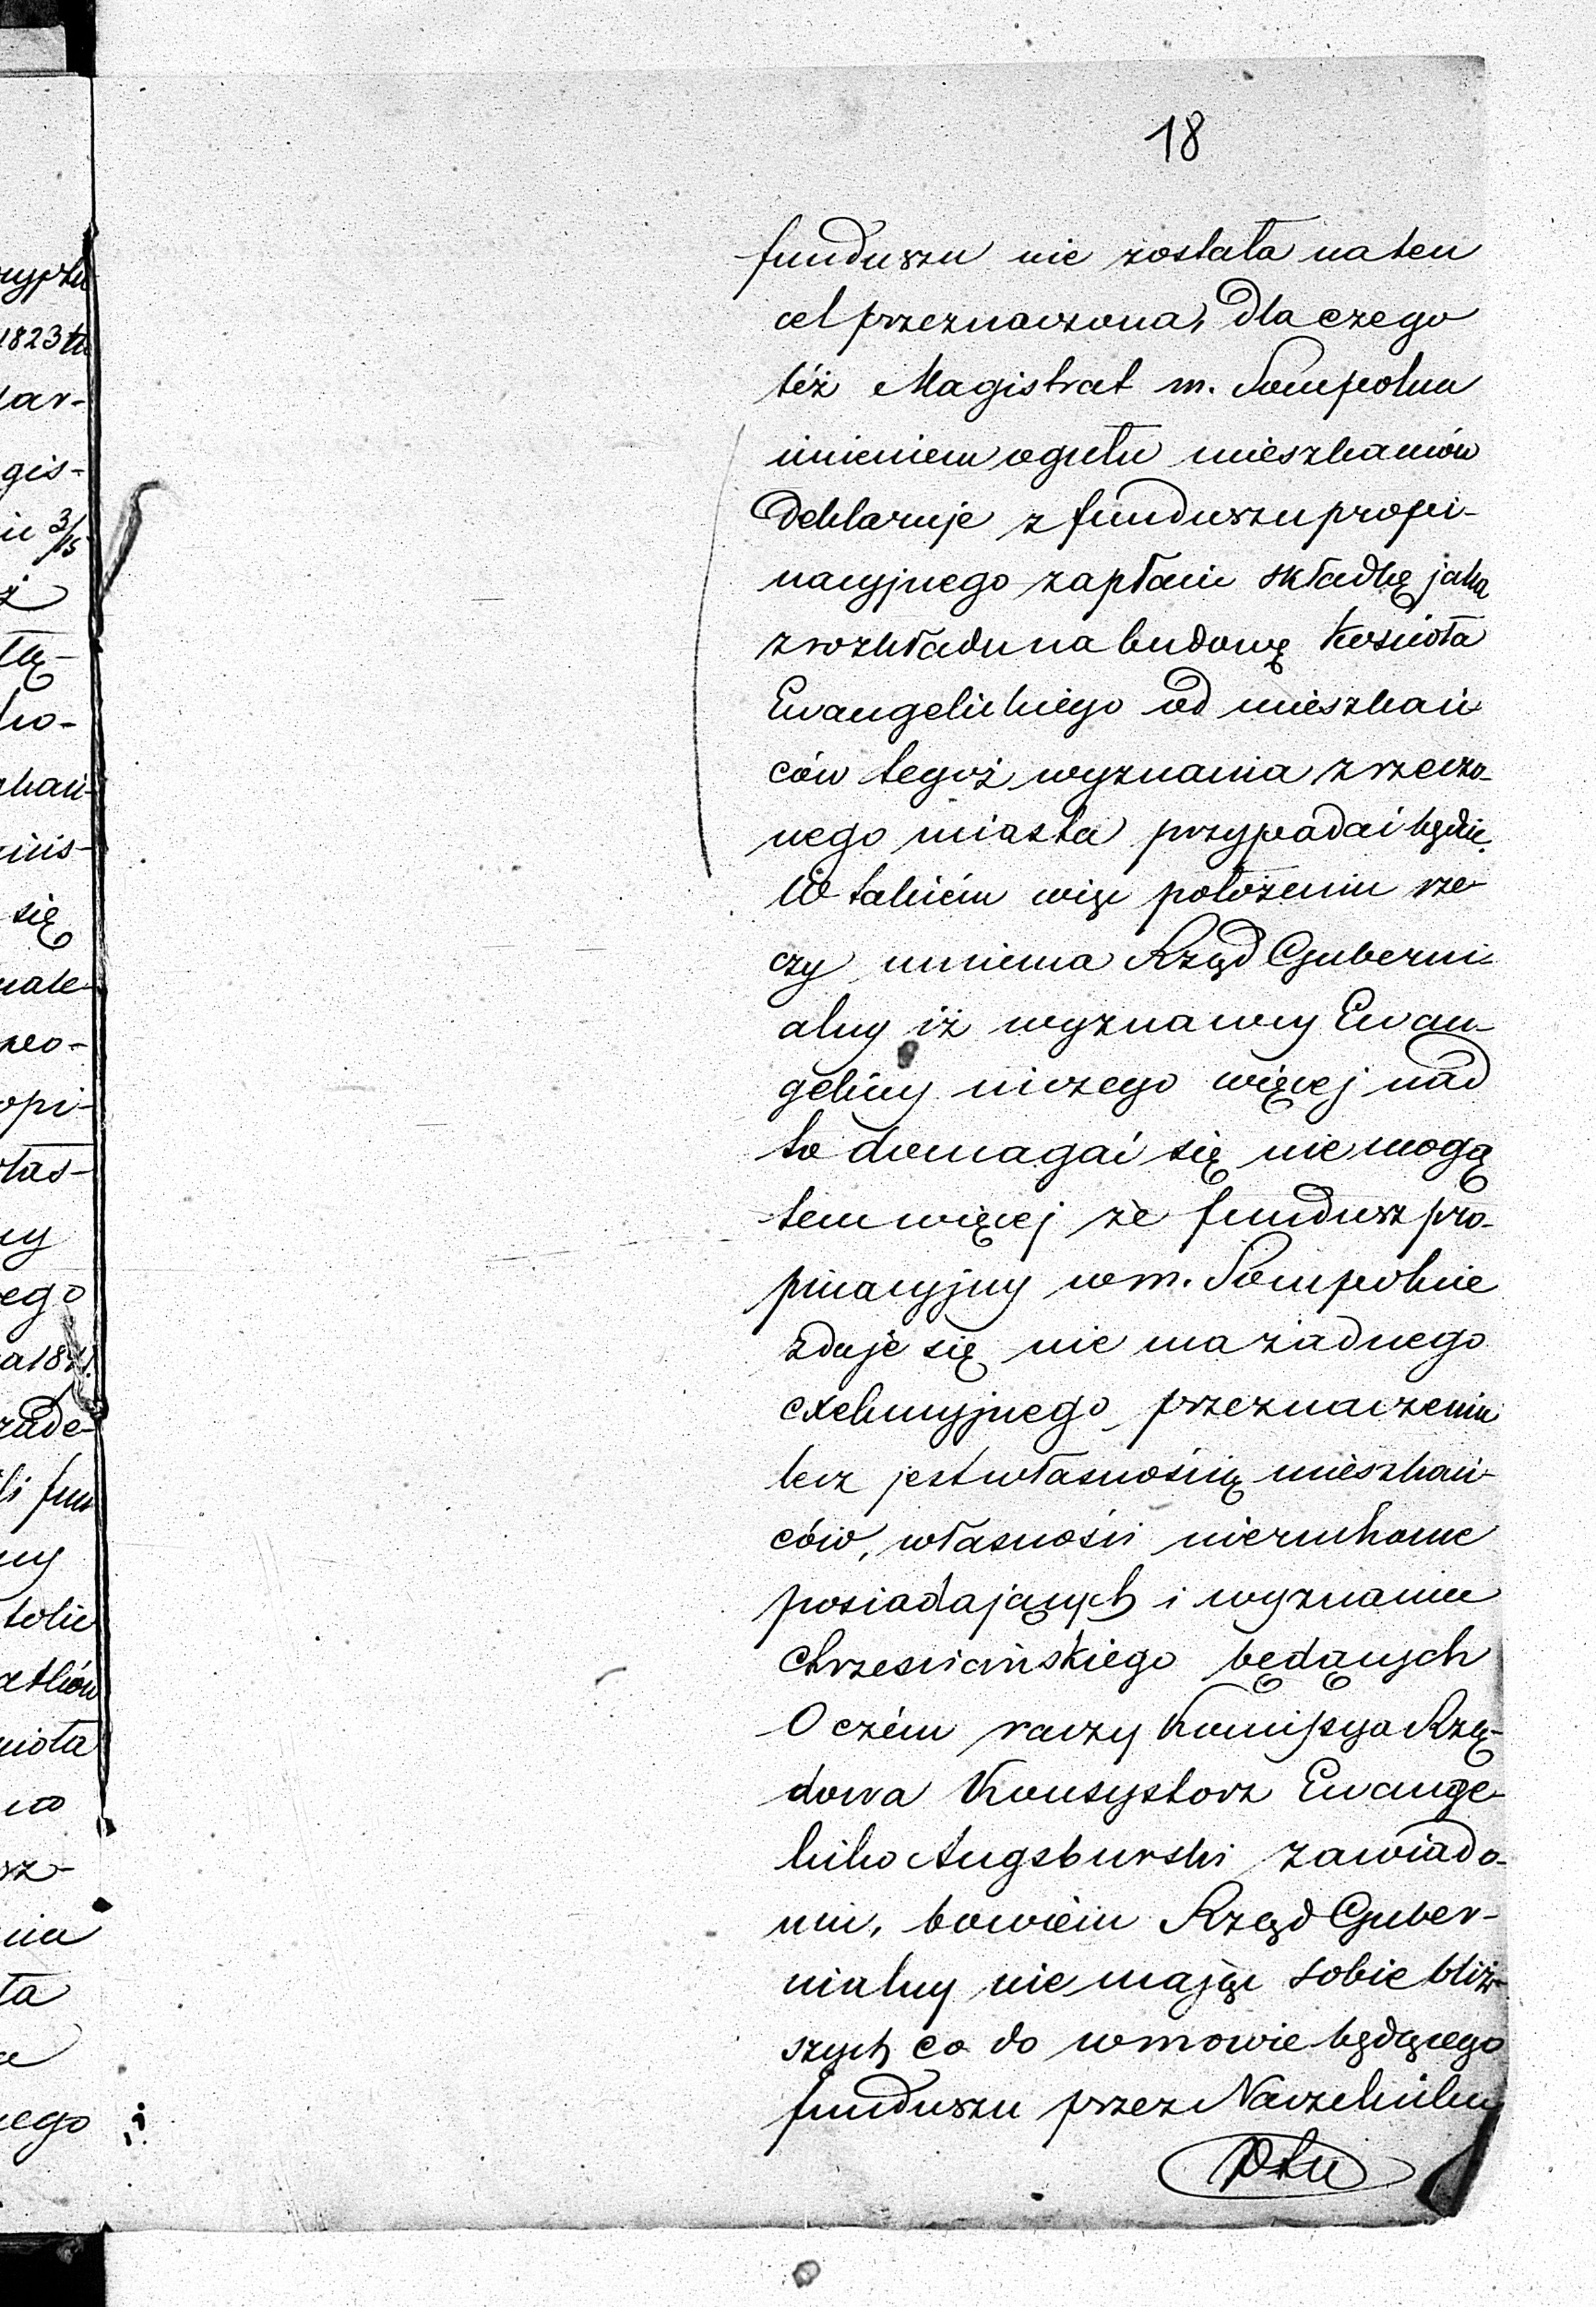 18
funduszu nie została na ten
cel przeznaczona, dla czego
też Magistrat m. Sompolna
imieniem ogułu mieszkańców
deklaruje z funduszu propi-
nacyjnego zapłacić składkę jaka
z rozkładu na budowę Kościoła
Ewangelickiego od mieszkań
ców tegoż wyznania z rzeczo-
nego miasta przypadać będzie.
W takiém więc położeniu rze-
czy mniema Rząd Guberni-
alny iż wyznawcy Ewan-
geliccy niczego więcej nad
to domagać się nie mogą
tem więcej że fundusz pro-
pinacyjny w m. Sompolnie
zdaje się nie ma żadnego
exekucyjnego przeznaczenia
lecz jest własnością mieszkań-
ców, własności nieruchome
posiadających i wyznania
chrześciańskiego będących
O czém raczy Kommissya Rzą-
dowa Konsystorz Ewange-
licko Augsburski zawiado-
mić, bowiem Rząd Guber-
nialny nie mając sobie bliż-
szych co do w mowie będącego
funduszu przez Naczelnika
Ptu
1823
gis-
3/15
się
opi-
ego